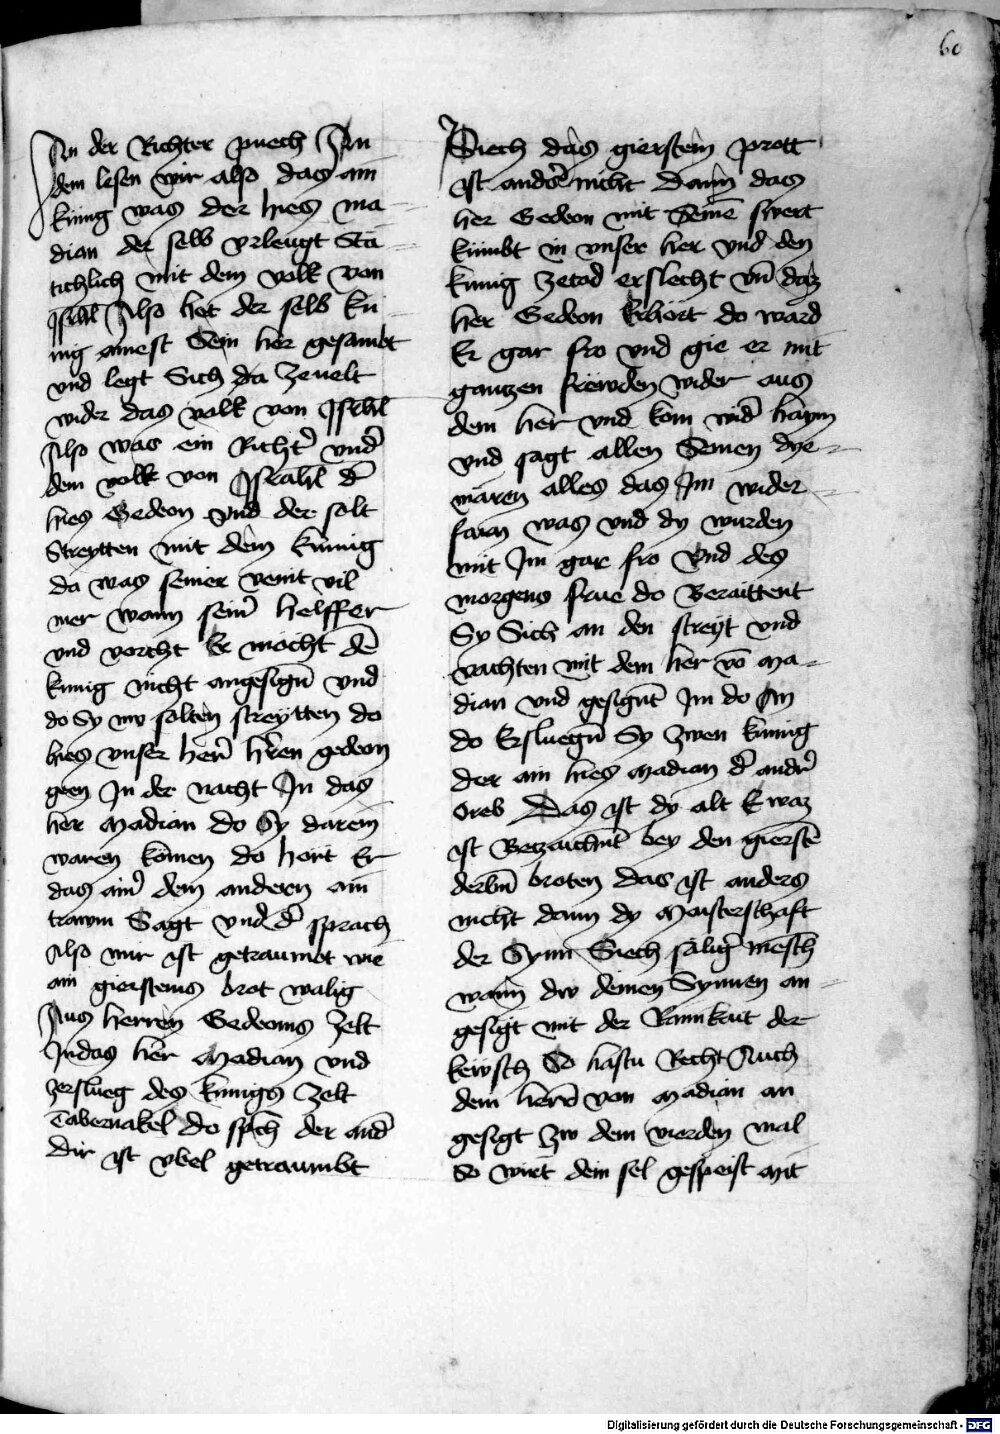 60
In der Richter puech In
dem lesen wir also das ain
künig was der hies ma-
dian der selb vrleugt Stä-
tichlich mit dem volk von
Isrl Also het der selb kü-
nig ainest Sein her gesambt
vnd legt Sich da ze velt
wider das volk von Isrl
Also was ein Richt' vnd'
dem volk von Israhl d'
hies Gedeon Vnd der solt
Streytten mit dem künig
da was seiner veint vil
mer wann sein' helffer
vnd vorcht Er möcht dē
künig nicht angesign̄ vnd
do Sy nw solten streytten do
hies vnser her' h'ren gedeon
geen In der nacht In das
her Madian do Sy darein
waren kömen do hort Er
das ain' dem anderen ain
trawm Sagt vnd d' sprach
Also mir ist getraumbt wie
ain gierstens brot walig
Aus herren Gedeons Zelt
In das her Madian vnd
zerslueg des künigs Zelt
Tabernakel do sp̄ch der and'
dir ist vbel getraumbt
Siech das gierstein prott
ist anders nicht dann das
her Gedeon mit Seinē swert
kümbt in vnser her vnd den
künig zetod erslecht vn̄ daz
her Gedeon Erhört do ward
Er gar fro vnd gie er mit
gantzen frewden wider aus
dem her vnd kom wid' haym
vnd sagt allen Seinen dye-
nären alles das Im wider-
faren was vnd dy wurden
mit Im gar fro Vnd des
morgens frue do Beraittent
Sy Sich an den streyt vnd
vachten mit dem her vō Ma-
dian vnd gesignt̄ Im do An
do Ersluegn̄ Sy zwen künig
der ain hies Madian d' andr'
Oreb Das ist dy alt E waz
ist Betzaichnt̄ bey den gierstē
derbn̄ broten das ist anders
nicht dann dy Maisterschaft
der Synn Siech sälig' mēsch
wann dw deinen Synnen an-
gesigt mit der Rainkait der
kewsch So hastu Recht Auch
dem herr̄ von Madian an
gesigt Zw dem vierden mal
So wirt dein sel gespeist Mit
Digitalisierung gefördert durch die Deutsche Forschungsgemeinschaft - DFG